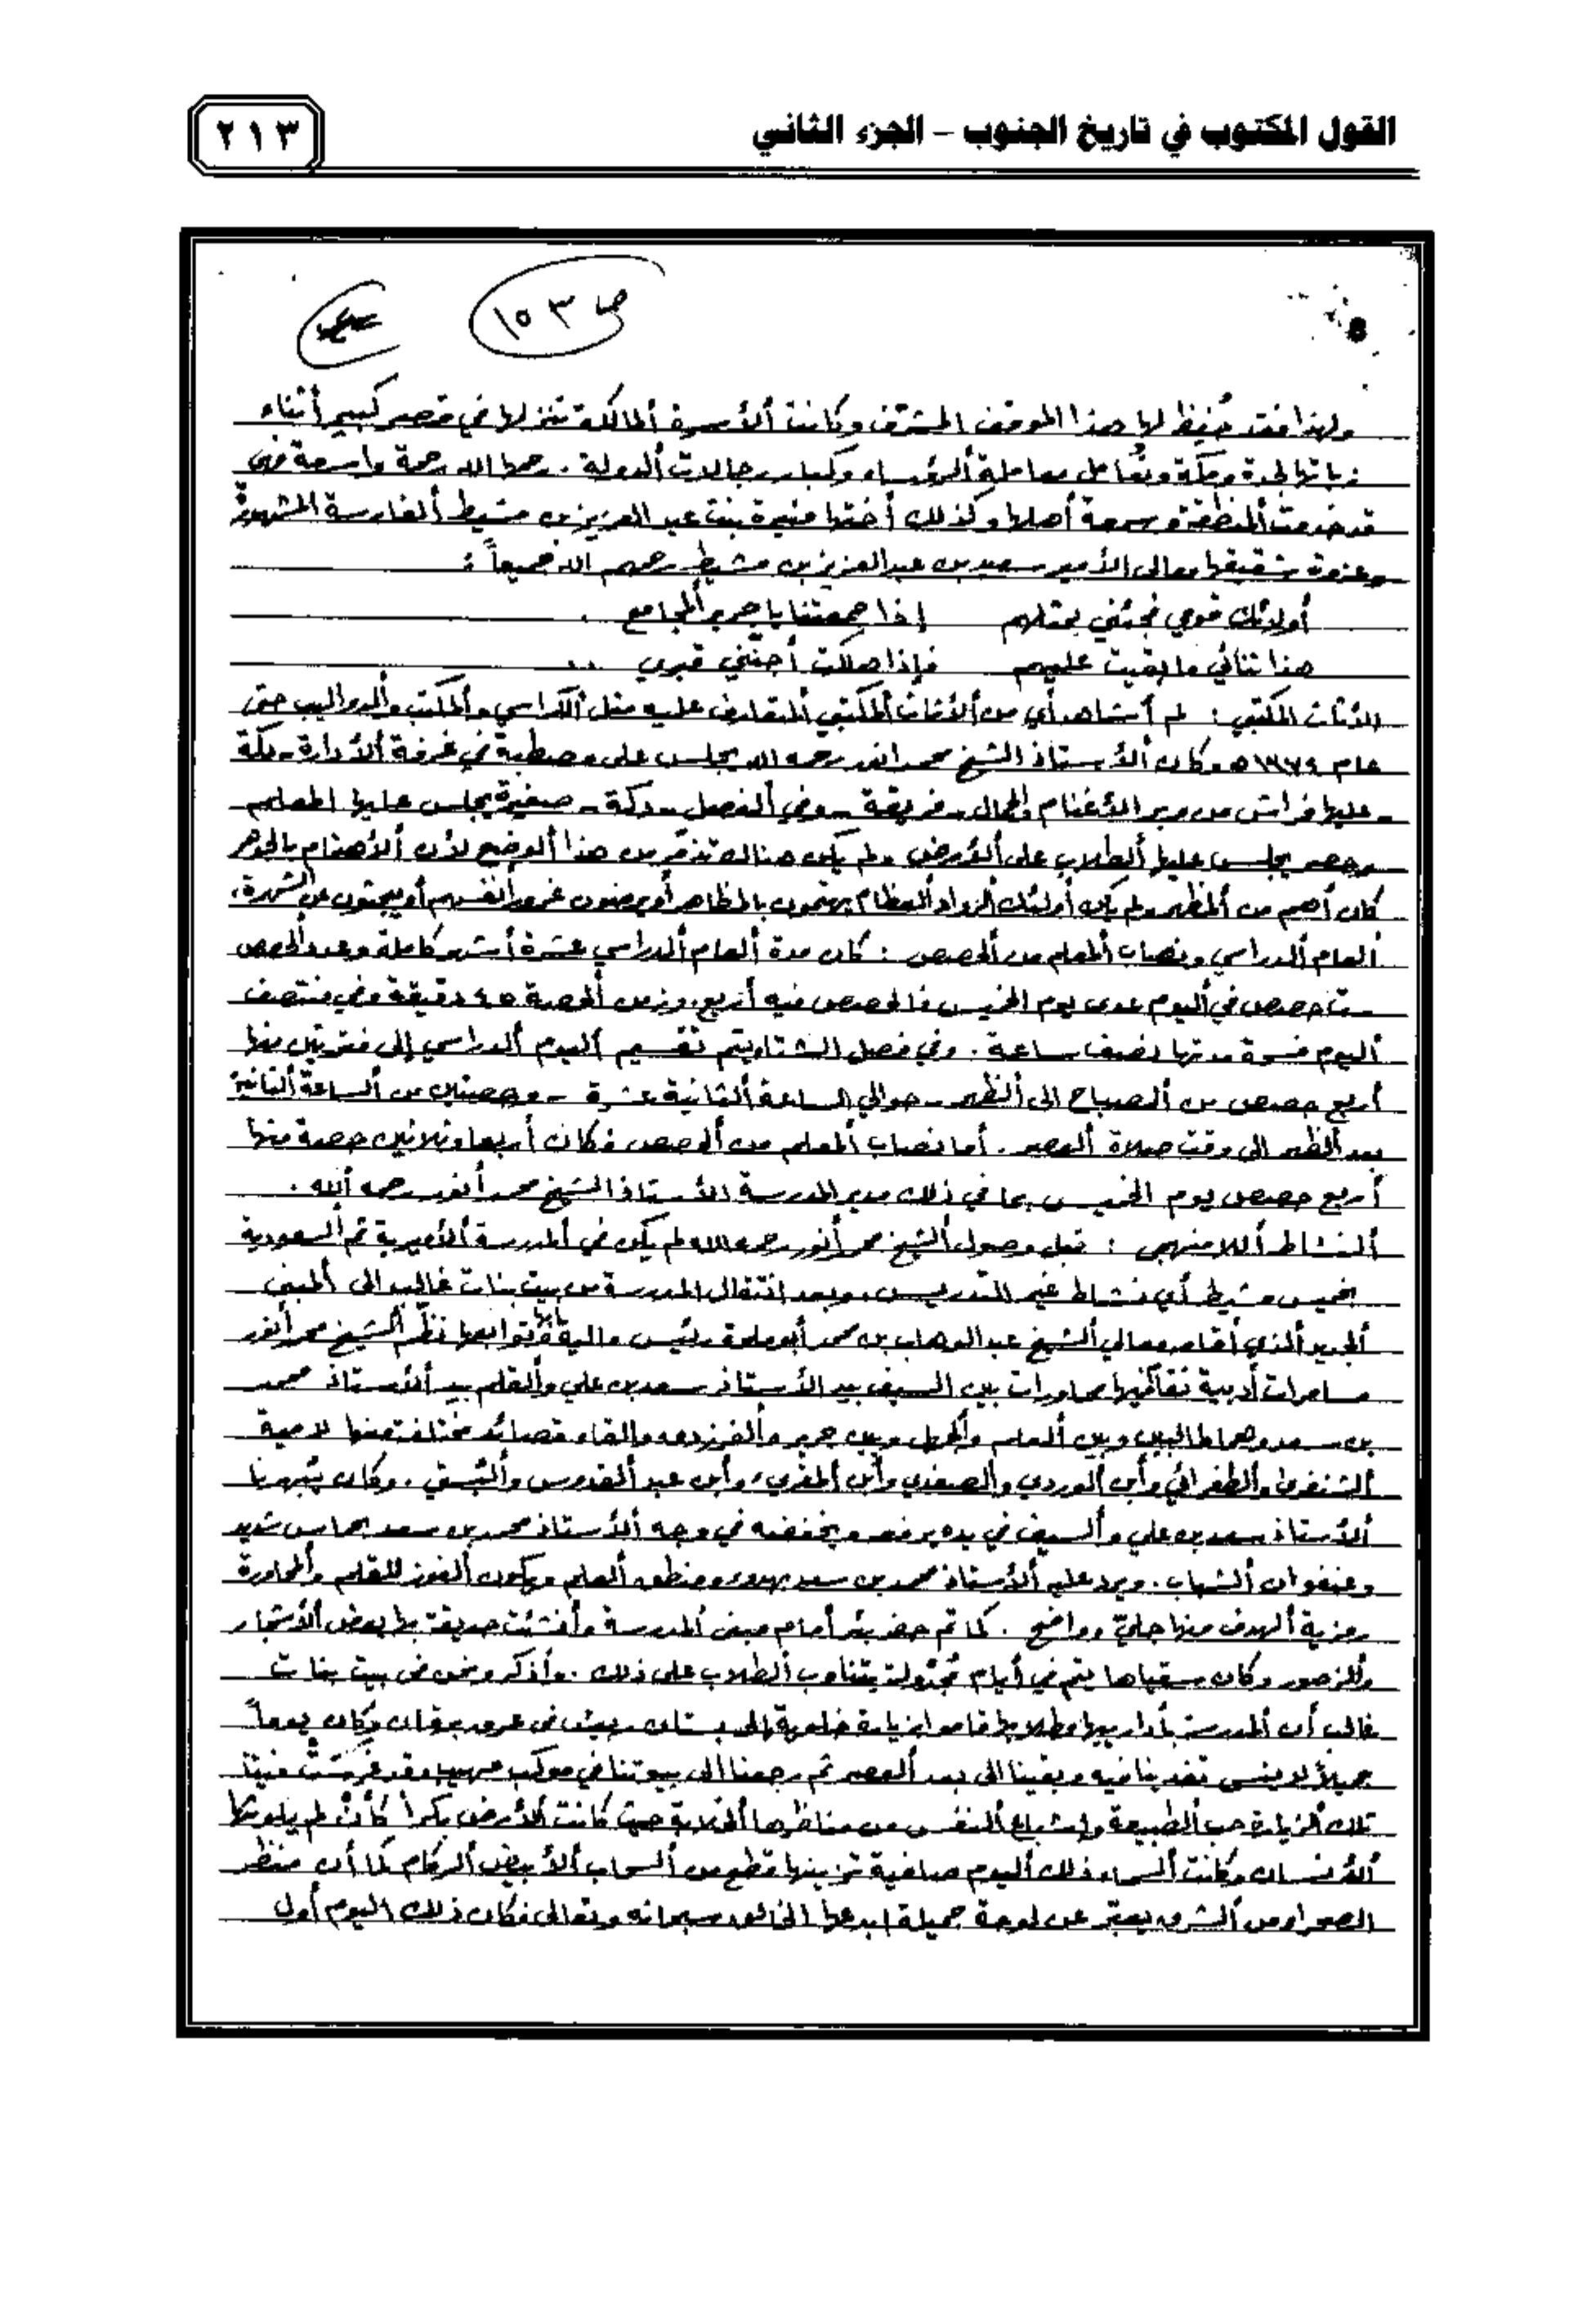 القول المكتوب في تاريخ الجنوب – الجزء الثاني
٢١٣
ص ١٥٣
ولهذا فقد حُفِظ لها هذا الموقف المشرف وكانت الأسرة المالكة تنزلها في قصر كبير أثناء
زياتها لجدة ومكة وتُعامل معاملة الرؤساء وكبار رجالات الدولة . رحمها الله رحمة واسعة فهي
قد خدمت المنطقة وسمعة أهلها وكذلك أختها منيرة بنت عبد العزيز بن مشيط الفارسة المشهورة
وعزوة شقيقها معالي الأمير سعيد بن عبدالعزيز بن مشيط رحمهم الله جميعاً :
أولئك قومي فجئني بمثلهم إذا جمعتنا يا جرير المجامع .
هذا ثنائي ما بقيت عليهم فإذا هلكت أجنّني قبري ..
الأثاث المكتبي : لم أشاهد أي من الأثاث المكتبي المتعارف عليه مثل الكراسي والمكتب والدواليب حتى
عام ١٣٧٤ه وكان الأستاذ الشيخ محمد انور رحمه الله يجلس على مصطبة في غرفة الأدارة - دكة
- عليها فراش من وبر الأغنام والجمال - فريقة - وفي الفصل - دكة - صغيرة يجلس عليها المعلم
وحصر يجلس عليها الطلاب على الأرض ولم يكن هناك تذمّر من هذا الوضع لأن الأهتمام بالجوهر
كان أهم من المظهر ولم يكن أولئك الرواد العظام يهتمون بالمظاهر أو يرضون غرور أنفسهم أو يبحثون عن الشهرة .
العام الدراسي ونصاب المعلم من الحصص : كان مدة العام الدراسي عشرة أشهر كاملة وعدد الحصص
ست حصص في اليوم عدى يوم الخميس فالحصص فيه أربع ، وزمن الحصة ٤٥ دقيقة وفي منتصف
اليوم فسحة مدتها نصف ساعة . وفي فصل الشتاء يتم تقسيم اليوم الدراسي إلى فترتين منها
أربع حصص من الصباح الى الظهر - حوالي الساعة الثانية عشرة - وحصتين من الساعة الثانية
بعد الظهر الى وقت صلاة العصر . أما نصاب المعلم من الحصص فكان أربعاً وثلاثين حصة منها
أربع حصص يوم الخميس بما في ذلك مدير المدرسة الأستاذ الشيخ محمد أنور رحمه الله .
النشاط اللامنهجي : قبل وصول الشيخ محمد أنور رحمه الله لم يكن في المدرسة الأميرية ثم السعودية
بخميس مشيط أي نشاط غير التدريس ، وبعد انتقال المدرسة من بيت بنات غالب الى المبنى
الجديد الذي أقامه معالي الشيخ عبد الوهاب بن محمد أبو ملحة رئيس مالية أبها وتوابعها نظّم الشيخ محمد أنور
مسامرات أدبية تقام فيها محاورات بين السيف بيد الأستاذ سعد بن علي والقلم بيد الأستاذ محمد
بن سعد وهما طالبين وبين العلم والجهل وبين جرير والفرزدق والقاء قصائد مختلفة منها لامية
الشنفرى والطغرائي وأبن الوردي والصفدي وأبن المقري ، وأبن عبد القدوس والبستي . وكان يُبهرنا
الأستاذ سعد بن علي والسيف في يده يرفعه ويخفضه في وجه الأستاذ محمد بن سعد بحماس شديد
وعنفوان الشباب . ويرد عليه الأستاذ محمد بن سعد بهدوء ومنطق العلم ويكون الفوز للقلم والمحاورة
رمزية الهدف منها جليّ وواضح . كما تم حفر بئر أمام مبنى المدرسة وأنشئت حديقة بها بعض الأشجار
والزهور وكان سقياها يتم في أيام مجدولة يتناوب الطلاب على ذلك . وأذكر ونحن في بيت بنات
غالب أن المدرسة بأدارييها وطلابها قاموا بزيارة خلوية إلى بستان بعرق سرقان وكان يوماً
جميلاً لا ينسى تغدينا فيه وبقينا الى بعد العصر ثم رجعنا الى بيوتنا في موكب مهيب وقد غرست فينا
تلك الزيارة حب الطبيعة وإشباع النفس من مناظرها الخلابة حيث كانت الأرض بكراً كأن لم يلوثها
الأنسان وكانت السماء ذلك اليوم صافية تزينها قطع من السحاب الأبيض الركام كما أن منظر
الصحراء من الشرق يعبّر عن لوحة جميلة ابدعها الخالق سبحانه وتعالى فكان ذلك اليوم أول